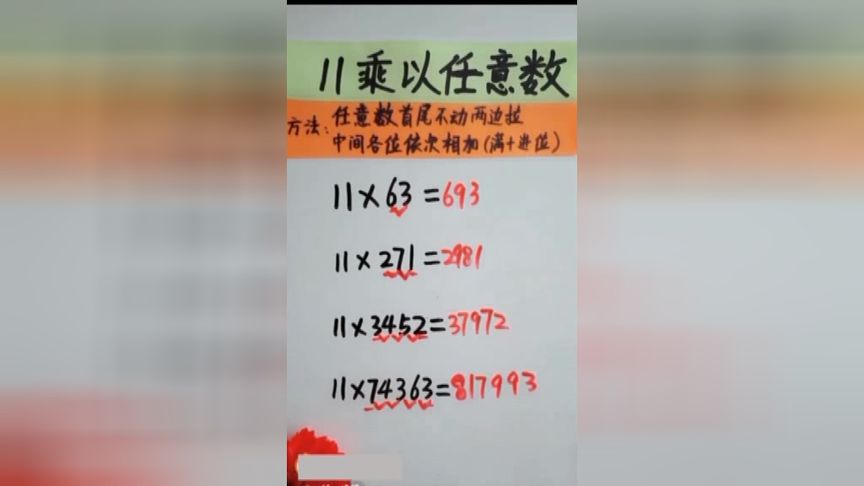 11乘以任意数
方法：任意数首尾不动两边拉
中间各位依次相加(满十进位)
11×63=693
11×271=2981
11×3452=37972
11×74363=817993